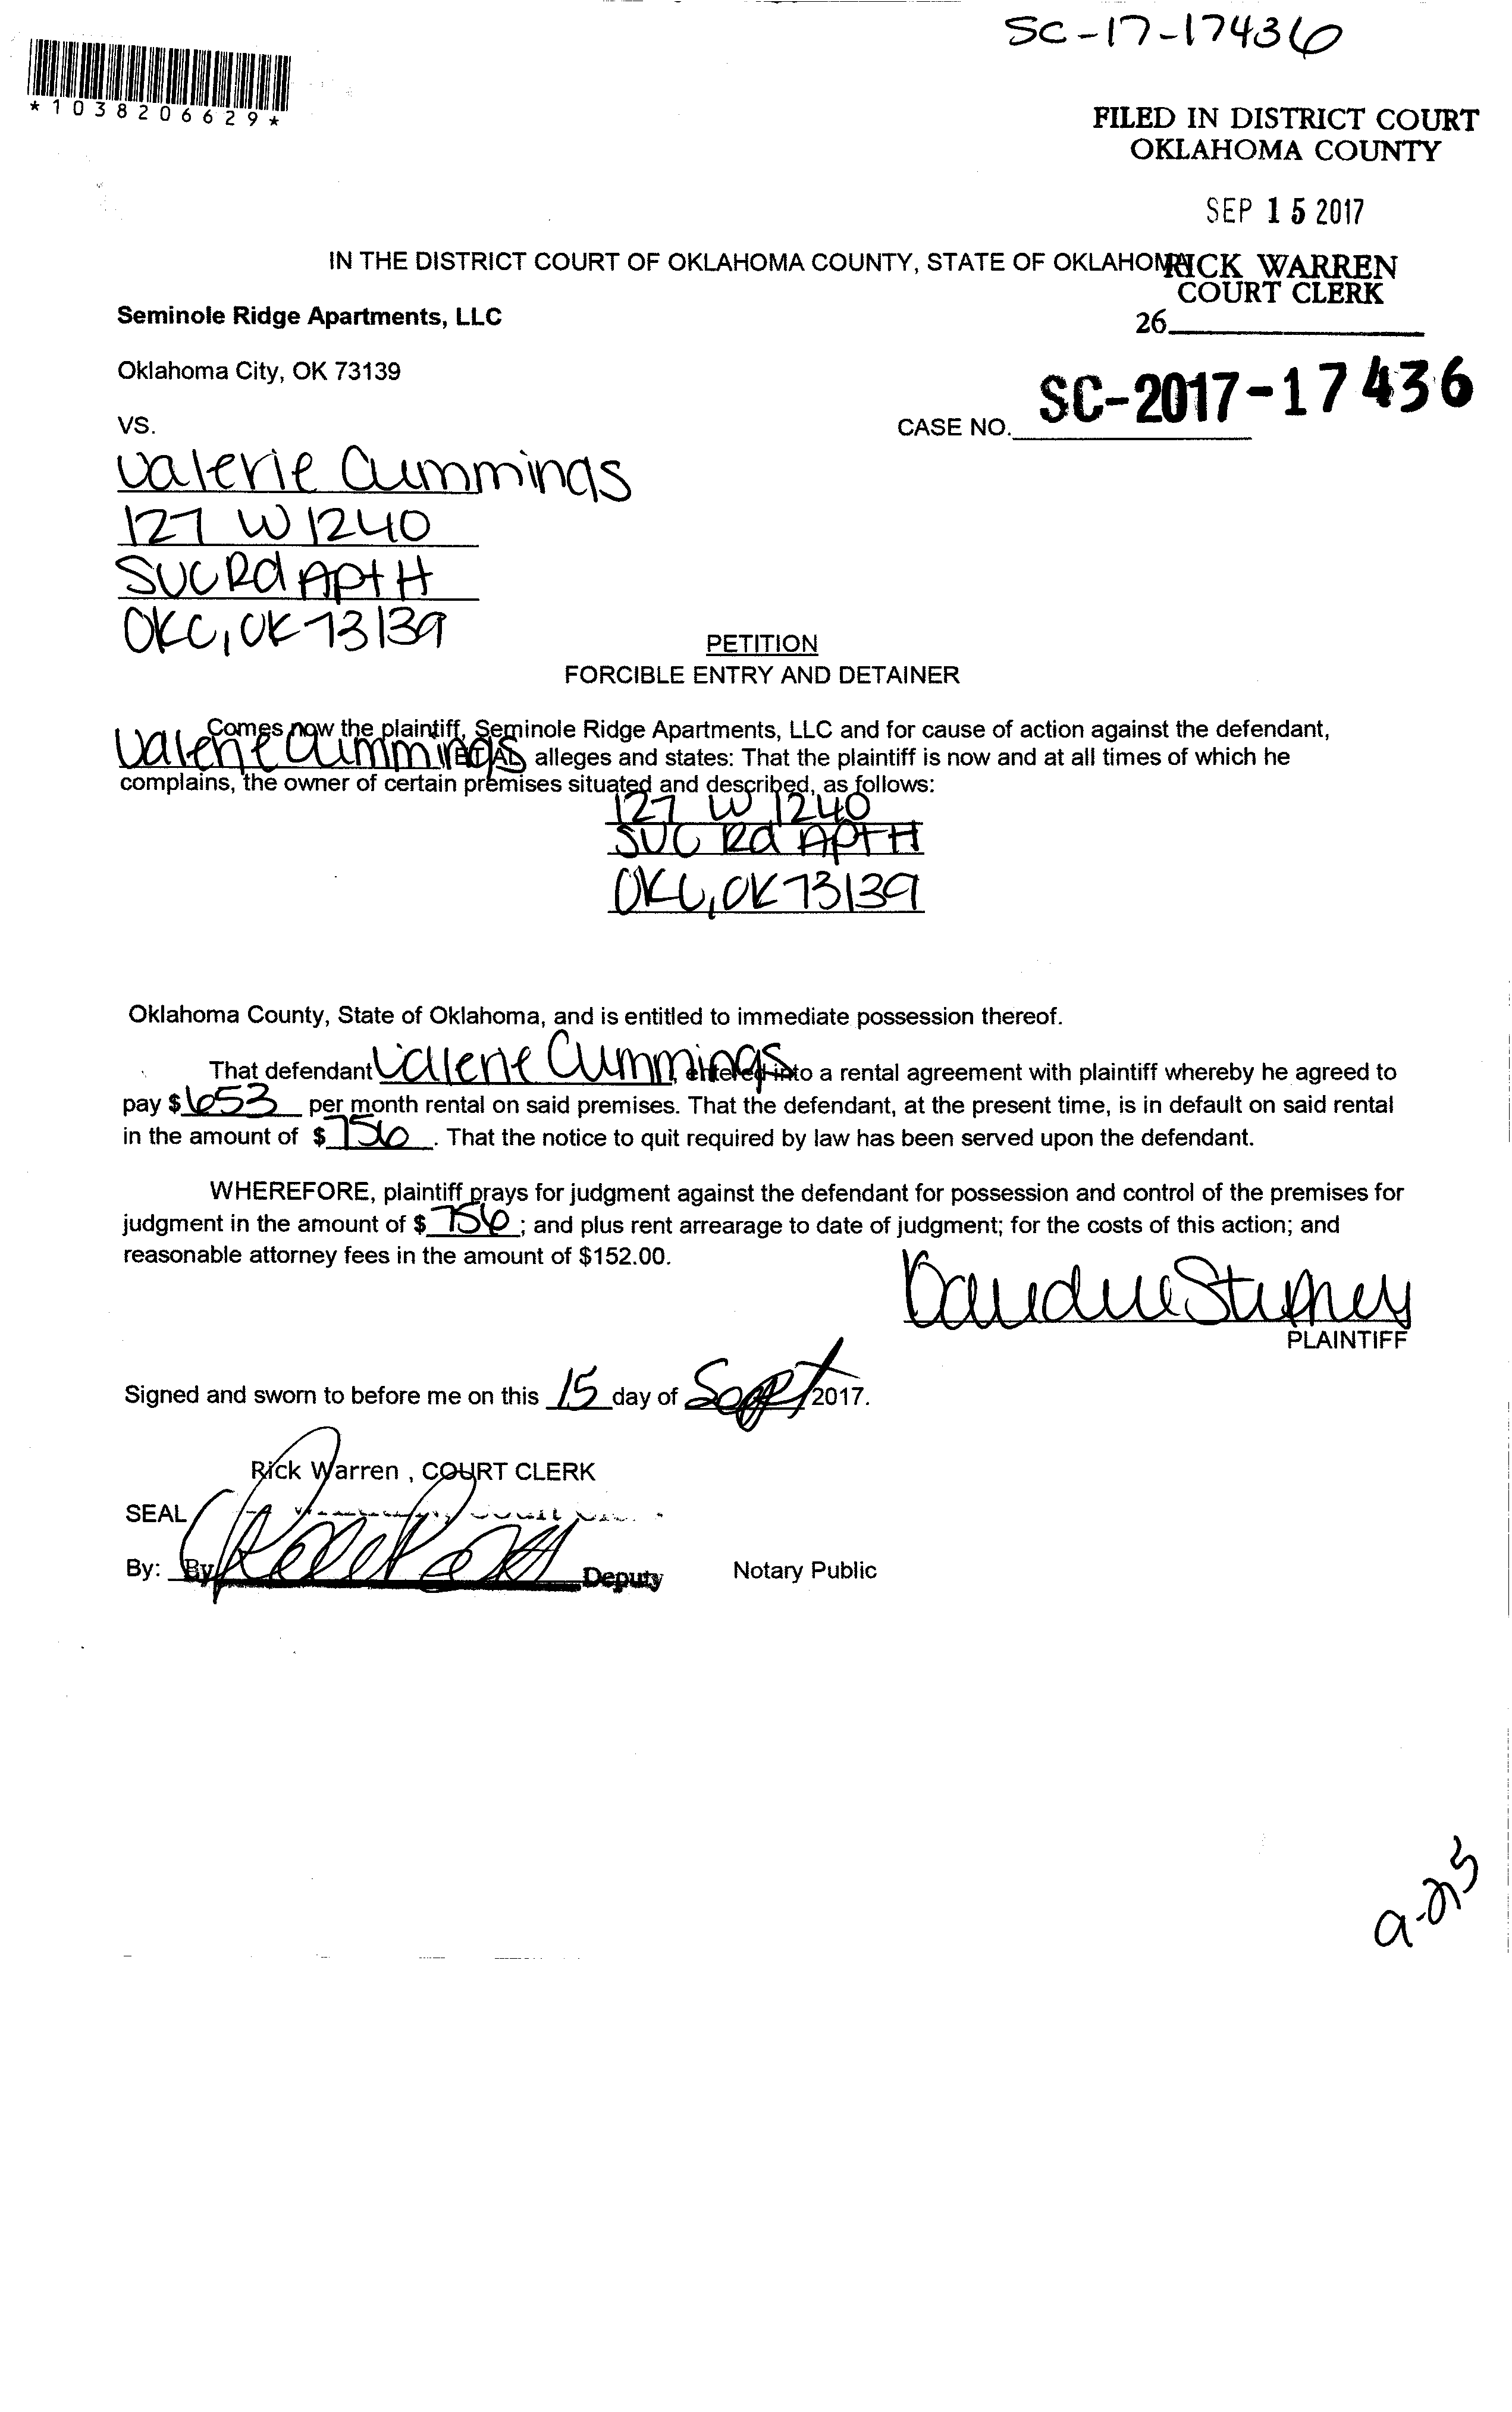 SC-17-17436
*1038206629*
FILED IN DISTRICT COURT
OKLAHOMA COUNTY
SEP 15 2017
IN THE DISTRICT COURT OF OKLAHOMA COUNTY, STATE OF OKLAHOMA
RICK WARREN
COURT CLERK
26
Seminole Ridge Apartments, LLC
Oklahoma City, OK 73139
SC-2017-17436
VS.
CASE NO.
Valerie Cummings
127 W 1240
SVC Rd Apt H
OKC, OK 73139
PETITION
FORCIBLE ENTRY AND DETAINER
Comes now the plaintiff, Seminole Ridge Apartments, LLC and for cause of action against the defendant,
Valerie Cummings ET AL alleges and states: That the plaintiff is now and at all times of which he
complains, the owner of certain premises situated and described, as follows:
127 W 1240
SVC Rd Apt H
OKC, OK 73139
Oklahoma County, State of Oklahoma, and is entitled to immediate possession thereof.
That defendant Valerie Cummings, entered into a rental agreement with plaintiff whereby he agreed to
pay $ 653 per month rental on said premises. That the defendant, at the present time, is in default on said rental
in the amount of $ 756. That the notice to quit required by law has been served upon the defendant.
WHEREFORE, plaintiff prays for judgment against the defendant for possession and control of the premises for
judgment in the amount of $ 756; and plus rent arrearage to date of judgment; for the costs of this action; and
reasonable attorney fees in the amount of $152.00.
PLAINTIFF
Signed and sworn to before me on this 15 day of Sept 2017.
Rick Warren , COURT CLERK
SEAL
By: By Deputy Notary Public